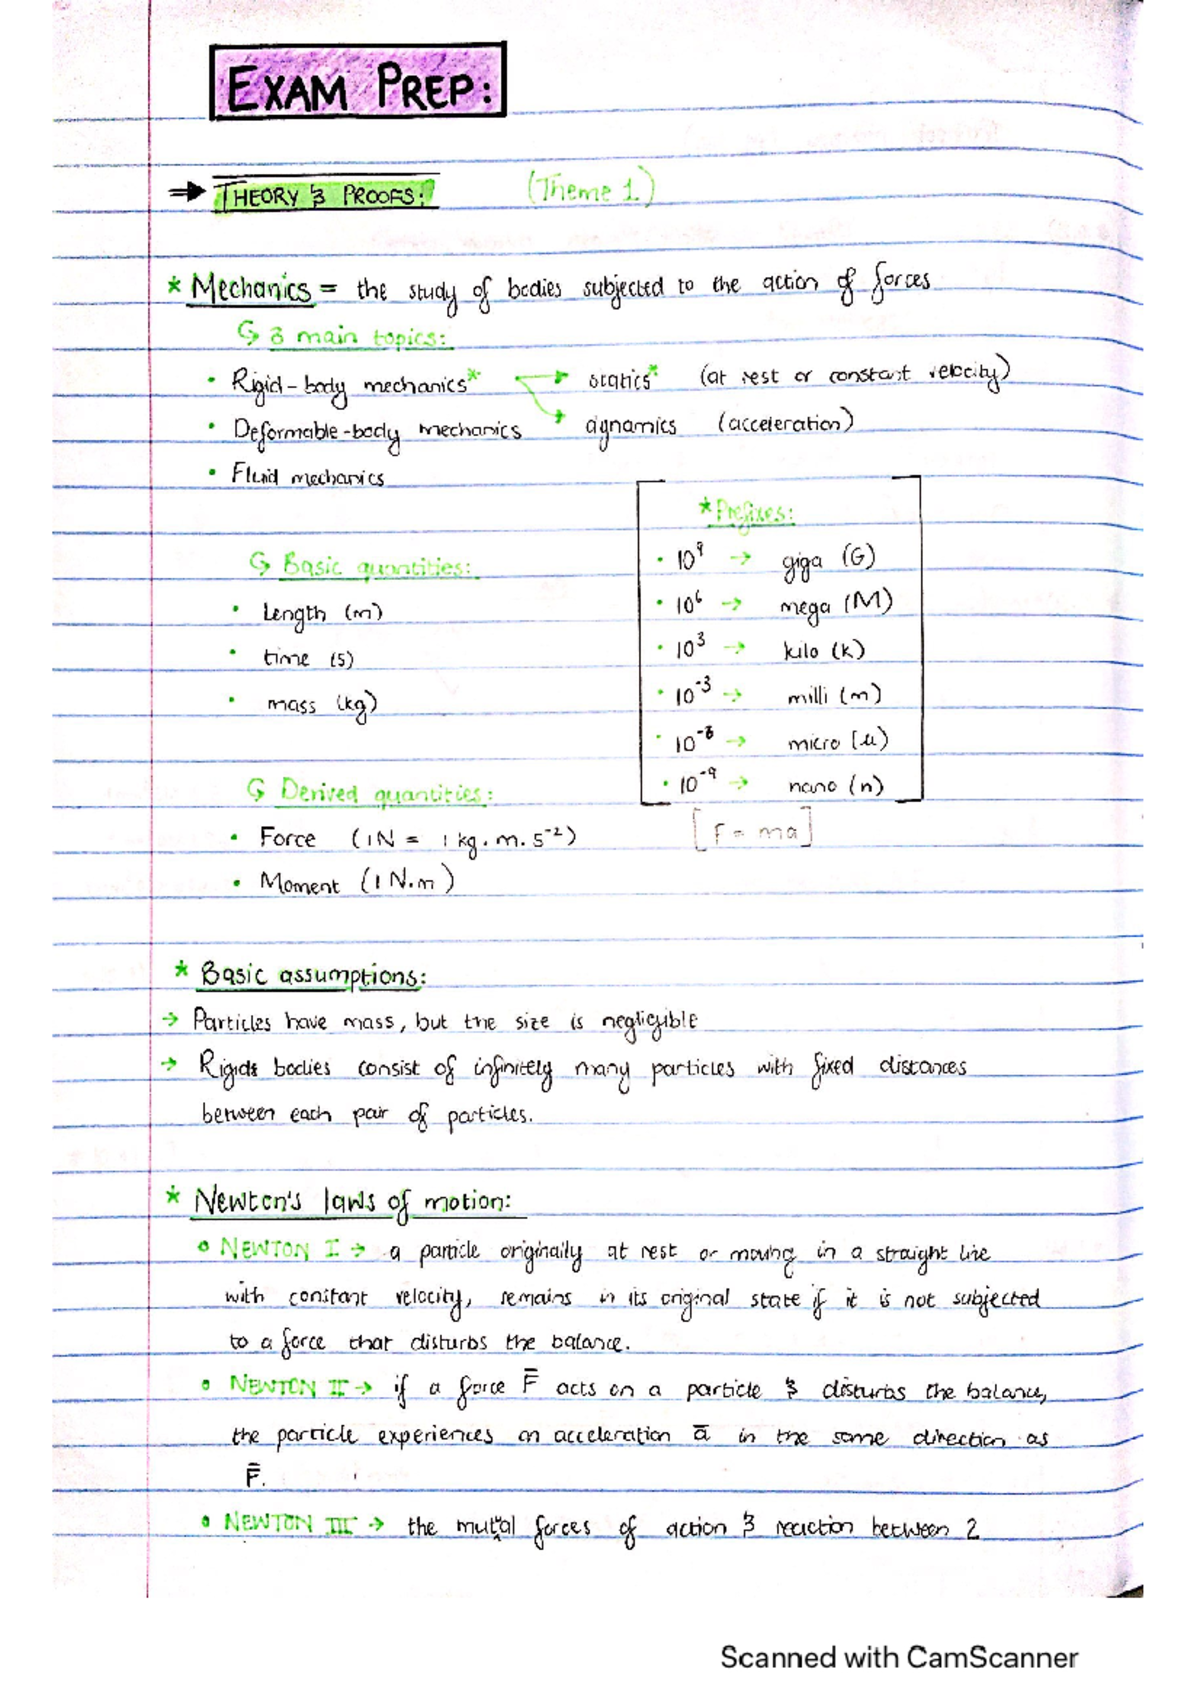 EXAM PREP:
⇒ THEORY & PROOFS: (Theme 1)
* Mechanics = the study of bodies subjected to the action of forces
↳ 3 main topics:
• Rigid-body mechanics* → statics* (at rest or constant velocity)
• Deformable-body mechanics → dynamics (acceleration)
• Fluid mechanics
* Prefixes:
• 10⁹ → giga (G)
• 10⁶ → mega (M)
• 10³ → kilo (k)
• 10⁻³ → milli (m)
• 10⁻⁶ → micro (μ)
• 10⁻⁹ → nano (n)
↳ Basic quantities:
• Length (m)
• time (s)
• mass (kg)
↳ Derived quantities:
• Force (1N = 1 kg.m.s⁻²) [F = ma]
• Moment (1 N.m)
* Basic assumptions:
→ Particles have mass, but the size is negligible
→ Rigids bodies consist of infinitely many particles with fixed distances
between each pair of particles.
* Newton's laws of motion:
• NEWTON I → a particle originally at rest or moving in a straight line
with constant velocity, remains in its original state if it is not subjected
to a force that disturbs the balance.
• NEWTON II → if a force F̅ acts on a particle & disturbs the balance,
the particle experiences an acceleration a̅ in the same direction as
F̅.
• NEWTON III → the mutual forces of action & reaction between 2
Scanned with CamScanner